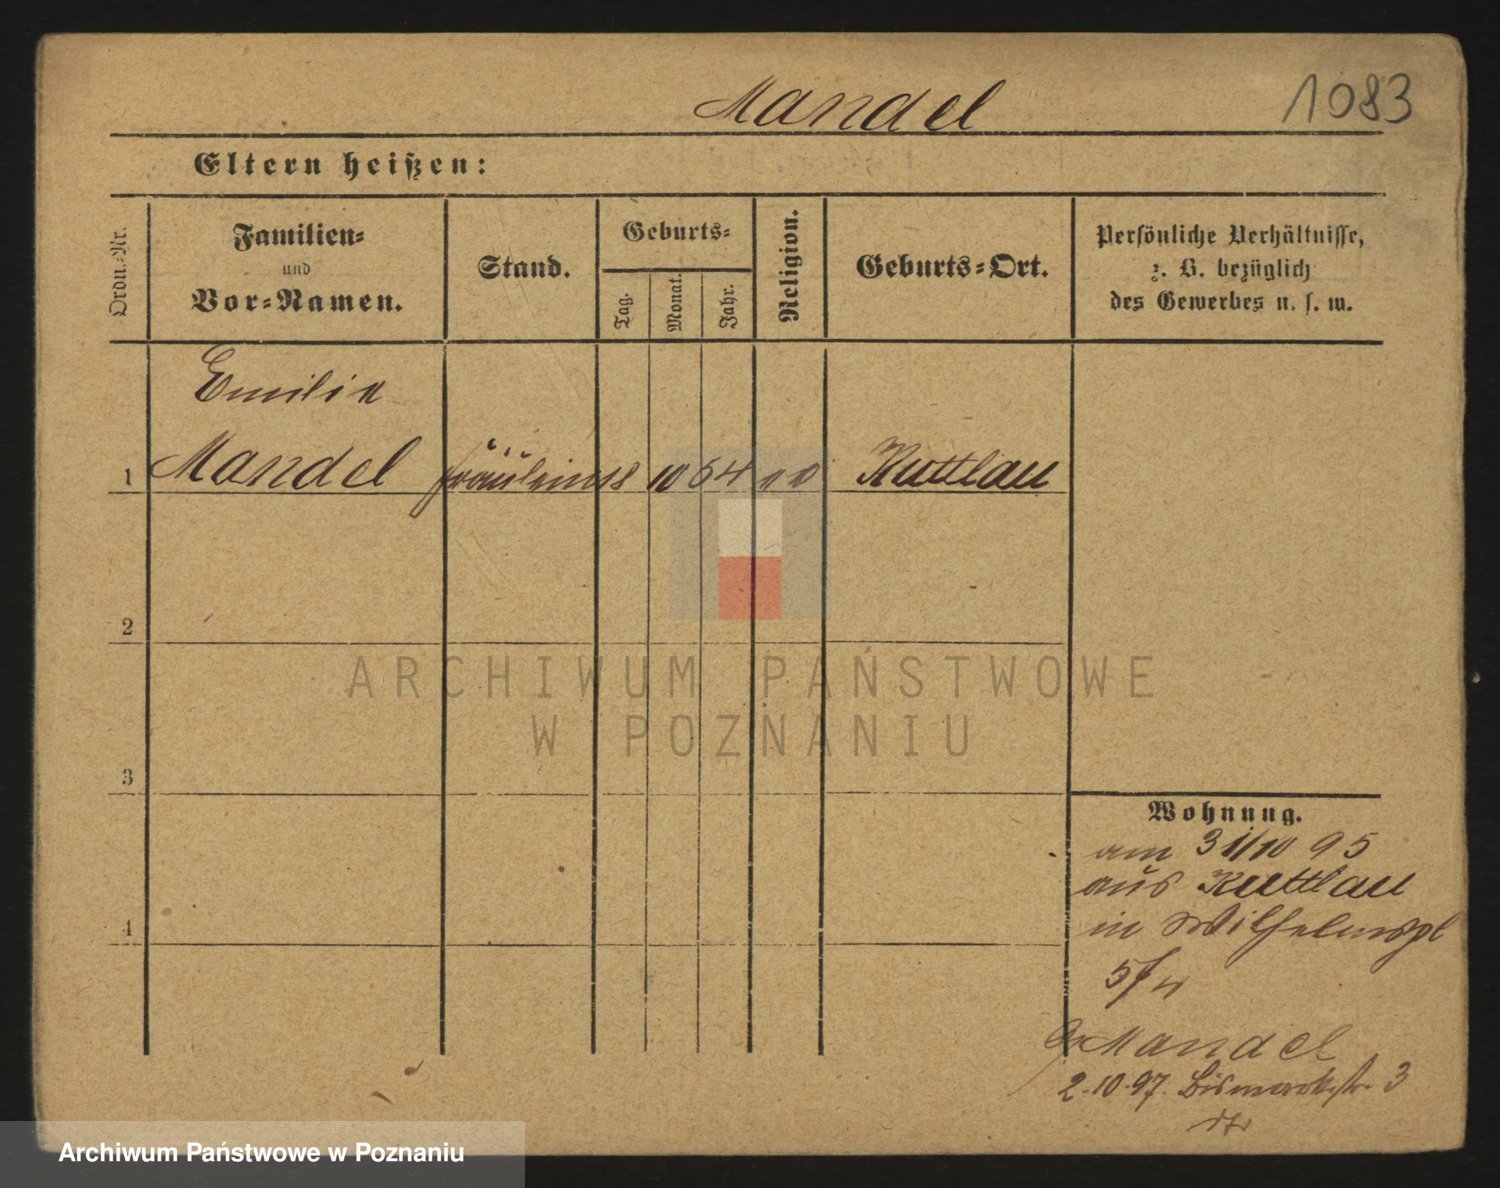 Mandel
1083
Eltern heißen:
Ordn.-Nr.
Familien-
und
Vor-Namen.
Stand.
Geburts-
Tag.
Monat.
Jahr.
Religion.
Geburts-Ort.
Persönliche Verhältnisse,
z. B. bezüglich
des Gewerbes u. s. w.
Emilie
1 Mandel Fräulein 18 10 64 ev Kuttlau
2
3
4
Wohnung.
am 31/10 95
aus Kuttlau
in Wilhelmspl
5/
Mandel
2.10.97. Bismarckstr. 3
ARCHIWUM PAŃSTWOWE
W POZNANIU
Archiwum Państwowe w Poznaniu